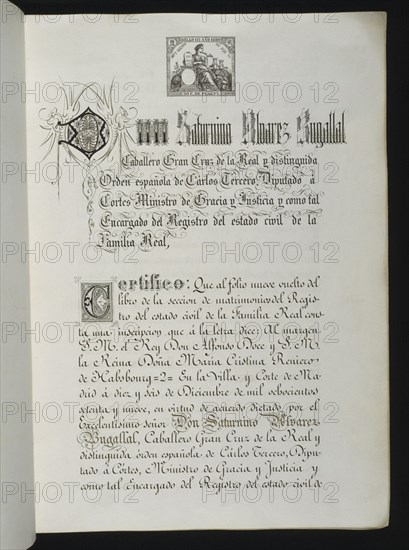 Don Saturnino Alvarez Bugallal
Caballero Gran Cruz de la Real y distinguida
Orden española de Carlos Tercero, Diputado á
Cortes Ministro de Gracia y Justicia y como tal
Encargado del Registro del estado civil de la
Familia Real,
Certifico: Que al folio nueve vuelto del
libro de la seccion de matrimonios del Regis-
tro del estado civil de la Familia Real cons-
ta una inscripcion que á la letra dice: Al margen
S. M. el Rey Don Alfonso Doce y S. M.
la Reina Doña Maria Cristina Reniero
de Habsbourg =2= En la Villa y Corte de Ma-
drid á diez y seis de Diciembre de mil ochocientos
setenta y nueve, en virtud de acuerdo dictado por el
Excelentísimo señor Don Saturnino Alvarez
Bugallal, Caballero Gran Cruz de la Real y
distinguida órden española de Cárlos Tercero, Dipu-
tado á Córtes, Ministro de Gracia y Justicia y
como tal Encargado del Registro del estado civil de